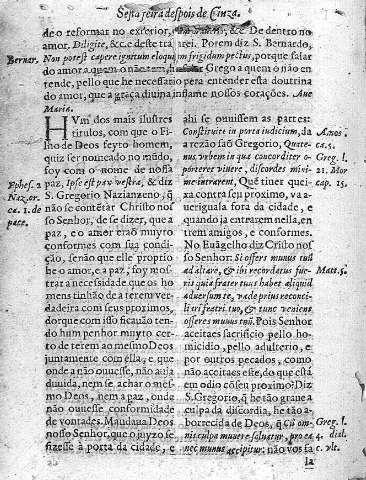 Sesta feira despois de Cinza.
de o reformar no exterior, & De dentro no
amor. Diligite, &c. deste tratarei. Porem diz S. Bernardo,
Bernar.
Non potest capere ignitum eloquium frigidum pectus, porque falar
do amor a quem o não tem, he Grego a quem o não en
tende, pello que he necessario pera entender esta doutrina
do amor, que a graça divina inflame nossos corações. Aue
Maria.
HVm dos mais illustres
titulos, com que o Fi-
lho de Deos feyto homem,
quiz ser nomeado no mũdo,
foy com o nome de nossa
paz, Ipse est pax vestra, & diz
S. Gregorio Nazianzeno, q̃
não se contẽtar Christo nos
so Senhor, de se dizer, que a
paz, e o amor erão muyto
conformes com sua condi-
ção, senão que elle proprio
he o amor, e a paz, foy mos-
trar a necessidade que os ho
mens tinhão de a terem ver-
dadeira com seus proximos,
dorque com isso ficauão ten-
do hum penhor muyto cer-
to de terem ao mesmo Deos
juntamente com ella, e que
onde a não ouuesse, não auia
duuida, nem se achar o mes-
mo Deos, nem a paz, onde
não ouuesse conformidade
de vontades. Mandaua Deos
nosso Senhor, que o juyzo se
fizesse à porta da cidade, e
Ephes. 2
Naz. or.
ce. 1. de
pace.
ahi se ouuissem as partes:
Constituite in porta iudicium, da
a rezão saõ Gregorio, Quate-
nus vrbem in qua concorditer o-
porteret viuere, discordes mini-
me intrarent, Quẽ tiuer quei-
xa contra seu proximo, va a-
ueriguala fora da cidade, e
quando ja entrarem nella, en
trem amigos, e conformes.
No Euãgelho diz Christo nos
so Senhor. Si offers munus tuũ
ad altare, & ibi recordatus fue-
ris quia frater tuus habet aliquid
aduersum te, vade prius reconci-
li cri fratri tuo, & tunc veniens
offeres munus tuũ. Pois Senhor
aceitaes sacrificio pello ho-
micidio, pello adulterio, e
por outros pecados, como
não aceitaes este, do que està
em odio cõ seu proximo? Diz
S. Gregorio, q̃ he tão graue a
culpa da discordia, he tão a-
borrecida de Deos, q̃ Cũ om
nis culpa munere saluatur, pro ea
nec munus accipitur: não vos ta
la
Amos.
ca. 5.
Greg. l.
21. Mor
cap. 15.
Matt. 5.
Greg. l.
4. dial.
c. vlt.